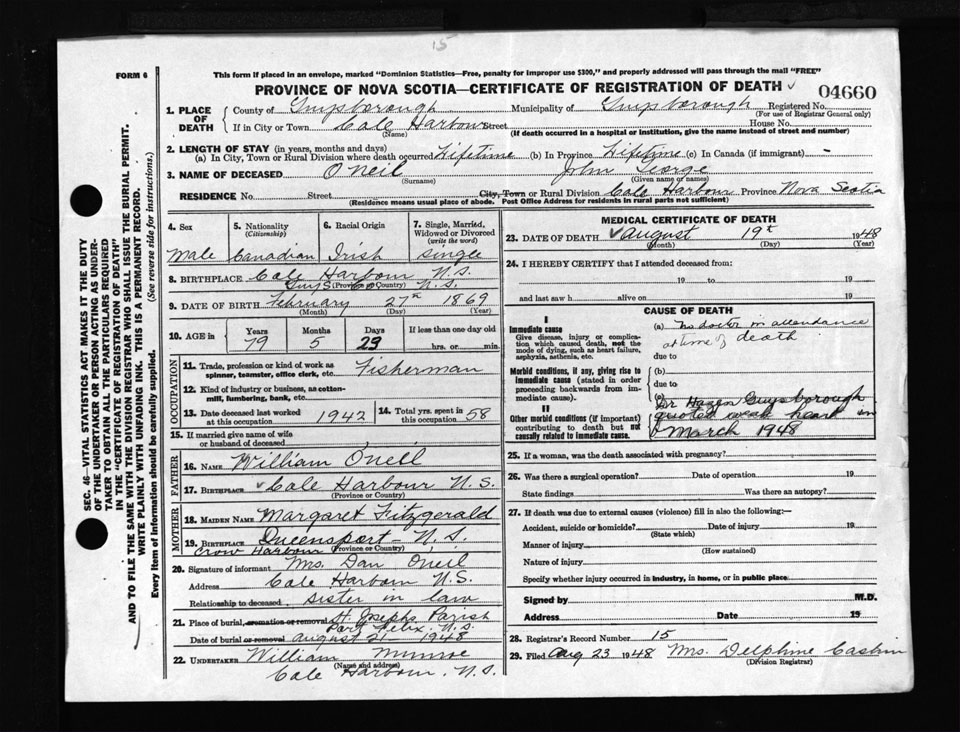 15
FORM 6
This form if placed in an envelope, marked "Dominion Statistics—Free, penalty for improper use $300," and properly addressed will pass through the mail "FREE"
PROVINCE OF NOVA SCOTIA—CERTIFICATE OF REGISTRATION OF DEATH
04660
1. PLACE OF DEATH
County of Guysborough Municipality of Guysborough Registered No.
(For use of Registrar General only)
If in City or Town Cole Harbour Street House No.
(Name) (If death occurred in a hospital or institution, give the name instead of street and number)
2. LENGTH OF STAY (in years, months and days)
(a) In City, Town or Rural Division where death occurred Lifetime (b) In Province Lifetime (c) In Canada (if immigrant) -
3. NAME OF DECEASED O'Neil John George
(Surname) (Given name or names)
RESIDENCE No. Street City, Town or Rural Division Cole Harbour Province Nova Scotia
(Residence means usual place of abode. Post Office Address for residents in rural parts not sufficient)
SEC. 46—VITAL STATISTICS ACT MAKES IT THE DUTY
OF THE UNDERTAKER OR PERSON ACTING AS UNDER-
TAKER TO OBTAIN ALL THE PARTICULARS REQUIRED
IN THE "CERTIFICATE OF REGISTRATION OF DEATH"
AND TO FILE THE SAME WITH THE DIVISION REGISTRAR WHO SHALL ISSUE THE BURIAL PERMIT.
WRITE PLAINLY WITH UNFADING INK. THIS IS A PERMANENT RECORD.
Every item of information should be carefully supplied. (See reverse side for instructions.)
4. Sex
Male
5. Nationality
(Citizenship)
Canadian
6. Racial Origin
Irish
7. Single, Married,
Widowed or Divorced
(write the word)
single
8. BIRTHPLACE Cole Harbour N.S.
(Province or Country)
Guys Co N.S.
9. DATE OF BIRTH February 27th 1869
(Month) (Day) (Year)
10. AGE in
Years Months Days If less than one day old
79 5 23 hrs. or min.
OCCUPATION
11. Trade, profession or kind of work as
spinner, teamster, office clerk, etc. Fisherman
12. Kind of industry or business, as cotton-
mill, lumbering, bank, etc.
13. Date deceased last worked
at this occupation 1942
14. Total yrs. spent in
this occupation 58
15. If married give name of wife
or husband of deceased
FATHER
16. NAME William O'neil
17. BIRTHPLACE Cole Harbour N.S.
(Province or Country)
MOTHER
18. MAIDEN NAME Margaret Fitzgerald
19. BIRTHPLACE Queensport - N.S.
Crow Harbour (Province or Country)
20. Signature of informant Mrs. Dan O'neil
Address Cole Harbour N.S.
Relationship to deceased sister in law
21. Place of burial, cremation or removal St. Josephs Parish
Port Felix N.S.
Date of burial or removal August 21 1948
22. UNDERTAKER William Munroe
(Name and address)
Cole Harbour, N.S.
MEDICAL CERTIFICATE OF DEATH
23. DATE OF DEATH August 19th 1948
(Month) (Day) (Year)
24. I HEREBY CERTIFY that I attended deceased from:
19 to 19
and last saw h alive on 19
CAUSE OF DEATH
I
Immediate cause
Give disease, injury or complica-
tion which caused death, not the
mode of dying, such as heart failure,
asphyxia, asthenia, etc.
(a) No doctor in attendance
at time of death
due to
Morbid conditions, if any, giving rise to
immediate cause (stated in order
proceeding backwards from im-
mediate cause).
(b)
due to
(c)
II
Other morbid conditions (if important)
contributing to death but not
causally related to immediate cause.
Dr Hazen Guysborough
quoted weak heart in
March 1948
25. If a woman, was the death associated with pregnancy?
26. Was there a surgical operation? Date of operation 19
State findings Was there an autopsy?
27. If death was due to external causes (violence) fill in also the following:—
Accident, suicide or homicide? Date of injury 19
(State which)
Manner of injury
(How sustained)
Nature of injury
Specify whether injury occurred in industry, in home, or in public place
Signed by M.D.
Address Date 19
28. Registrar's Record Number 15
29. Filed Aug 23 1948 Mrs. Delphine Cashin
(Division Registrar)